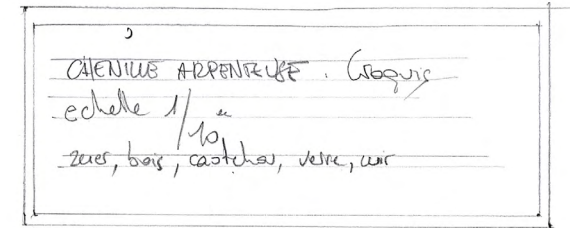 CHENILLE ARPENTEUSE. Croquis
echelle 1/10è
bois, caotchou, verre, cuir